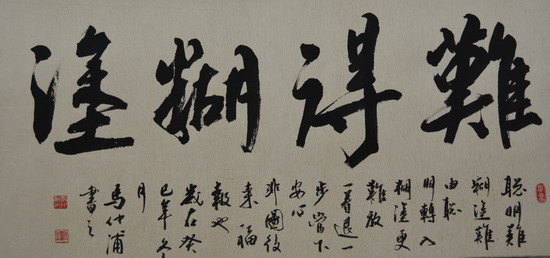 難得糊塗
聰明難
糊塗難
由聪
明轉入
糊塗更
難放
一着退一
步當下
安心
非圖後
來福
報也
歲在癸
巳年冬
月
馬仲浦
書之